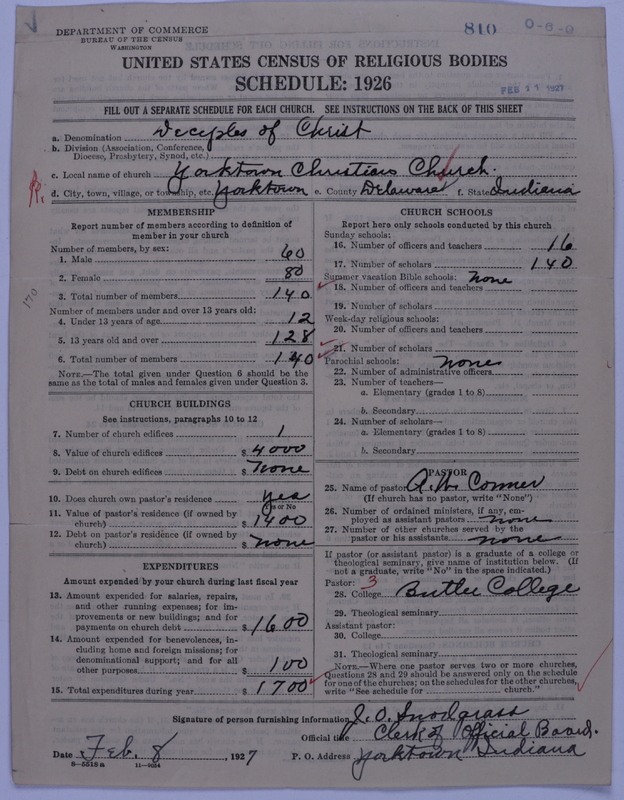 DEPARTMENT OF COMMERCE
BUREAU OF THE CENSUS
WASHINGTON
810
0-6-0
UNITED STATES CENSUS OF RELIGIOUS BODIES
SCHEDULE: 1926
FEB 11 1927
FILL OUT A SEPARATE SCHEDULE FOR EACH CHURCH. SEE INSTRUCTIONS ON THE BACK OF THIS SHEET
a. Denomination Deciples of Christ
b. Division (Association, Conference, Diocese, Presbytery, Synod, etc.)
c. Local name of church Yorktown Christian Church.
d. City, town, village, or township, etc. Yorktown e. County Delaware f. State Indiana
MEMBERSHIP
Report number of members according to definition of
member in your church
Number of members, by sex:
1. Male 60
2. Female 80
3. Total number of members 140
170
Number of members under and over 13 years old:
4. Under 13 years of age 12
5. 13 years old and over 128
6. Total number of members 140
NOTE.—The total given under Question 6 should be
same as the total of males and females given under Question 3.
CHURCH BUILDINGS
See instructions, paragraphs 10 to 12
7. Number of church edifices 1
8. Value of church edifices $ 4000
9. Debt on church edifices $ None
10. Does church own pastor's residence yes
Yes or No
11. Value of pastor's residence (if owned by
church) $ 1400
12. Debt on pastor's residence (if owned by
church) $ none
EXPENDITURES
Amount expended by your church during last fiscal year
13. Amount expended for salaries, repairs,
and other running expenses; for im-
provements or new buildings; and for
payments on church debt $ 1600
14. Amount expended for benevolences, in-
cluding home and foreign missions; for
denominational support; and for all
other purposes $ 100
15. Total expenditures during year $ 1700
CHURCH SCHOOLS
Report here only schools conducted by this church
Sunday schools:
16. Number of officers and teachers 16
17. Number of scholars 140
Summer vacation Bible schools: none
18. Number of officers and teachers
19. Number of scholars
Week-day religious schools:
20. Number of officers and teachers
21. Number of scholars
Parochial schools: none
22. Number of administrative officers
23. Number of teachers—
a. Elementary (grades 1 to 8)
b. Secondary
24. Number of scholars—
a. Elementary (grades 1 to 8)
b. Secondary
PASTOR
25. Name of pastor A. W. Conner
(If church has no pastor, write "None")
26. Number of ordained ministers, if any, em-
ployed as assistant pastors none
27. Number of other churches served by the
pastor or his assistants none
If pastor (or assistant pastor) is a graduate of a college or
theological seminary, give name of institution below. (If
not a graduate, write "No" in the space indicated.)
Pastor: 3
28. College Butler College
29. Theological seminary
Assistant pastor:
30. College
31. Theological seminary
NOTE.—Where one pastor serves two or more churches,
Questions 28 and 29 should be answered only on the schedule
for one of the churches; on the schedules for the other churches,
write "See schedule for church."
Signature of person furnishing information J. O. Snodgrass
Official title Clerk of Official Board.
Date Feb. 8, 1927 P. O. Address Yorktown Indiana